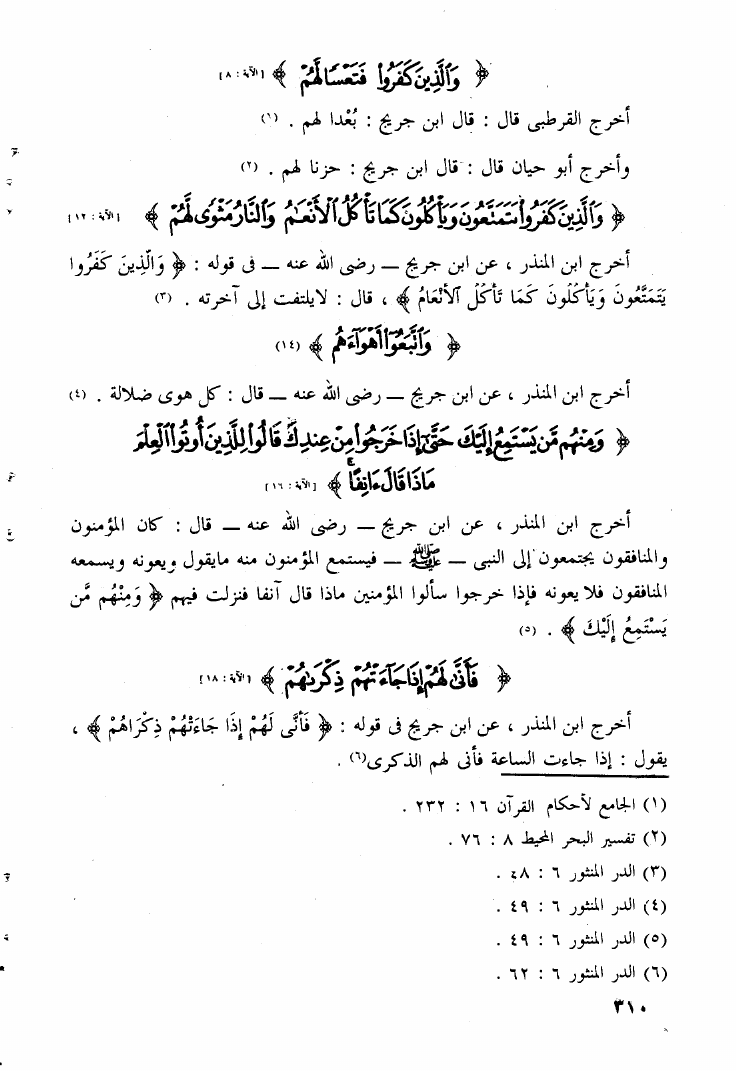 ﴿ وَٱلَّذِينَ كَفَرُوا۟ فَتَعْسًا لَّهُمْ ﴾ [الآية : ٨]
أخرج القرطبى قال : قال ابن جريج : بُعْدا لهم . (١)
وأخرج أبو حيان قال : قال ابن جريج : حزنا لهم . (٢)
﴿ وَٱلَّذِينَ كَفَرُوا۟ يَتَمَتَّعُونَ وَيَأْكُلُونَ كَمَا تَأْكُلُ ٱلْأَنْعَـٰمُ وَٱلنَّارُ مَثْوًى لَّهُمْ ﴾ [الآية : ١٢]
أخرج ابن المنذر ، عن ابن جريج — رضى الله عنه — فى قوله : ﴿ وَالَّذِينَ كَفَرُوا
يَتَمَتَّعُونَ وَيَأكُلُونَ كَمَا تَأكُلُ ٱلأنْعَامُ ﴾ ، قال : لايلتفت إلى آخرته . (٣)
﴿ وَٱتَّبَعُوٓا۟ أَهْوَآءَهُمْ ﴾ (١٤)
أخرج ابن المنذر ، عن ابن جريج — رضى الله عنه — قال : كل هوى ضلالة . (٤)
﴿ وَمِنْهُم مَّن يَسْتَمِعُ إِلَيْكَ حَتَّىٰٓ إِذَا خَرَجُوا۟ مِنْ عِندِكَ قَالُوا۟ لِلَّذِينَ أُوتُوا۟ ٱلْعِلْمَ
مَاذَا قَالَ ءَانِفًا ﴾ [الآية : ١٦]
أخرج ابن المنذر ، عن ابن جريج — رضى الله عنه — قال : كان المؤمنون
والمنافقون يجتمعون إلى النبى — ﷺ — فيستمع المؤمنون منه مايقول ويعونه ويسمعه
المنافقون فلا يعونه فإذا خرجوا سألوا المؤمنين ماذا قال آنفا فنزلت فيهم ﴿ وَمِنْهُم مَّن
يَسْتَمِعُ إِلَيْكَ ﴾ . (٥)
﴿ فَأَنَّىٰ لَهُمْ إِذَا جَآءَتْهُمْ ذِكْرَىٰهُمْ ﴾ [الآية : ١٨]
أخرج ابن المنذر ، عن ابن جريج فى قوله : ﴿ فَأَنَّى لَهُمْ إِذَا جَاءَتْهُمْ ذِكْرَاهُمْ ﴾ ،
يقول : إذا جاءت الساعة فأنى لهم الذكرى(٦) .
(١) الجامع لأحكام القرآن ١٦ : ٢٣٢ .
(٢) تفسير البحر المحيط ٨ : ٧٦ .
(٣) الدر المنثور ٦ : ٤٨ .
(٤) الدر المنثور ٦ : ٤٩ .
(٥) الدر المنثور ٦ : ٤٩ .
(٦) الدر المنثور ٦ : ٦٢ .
٣١٠